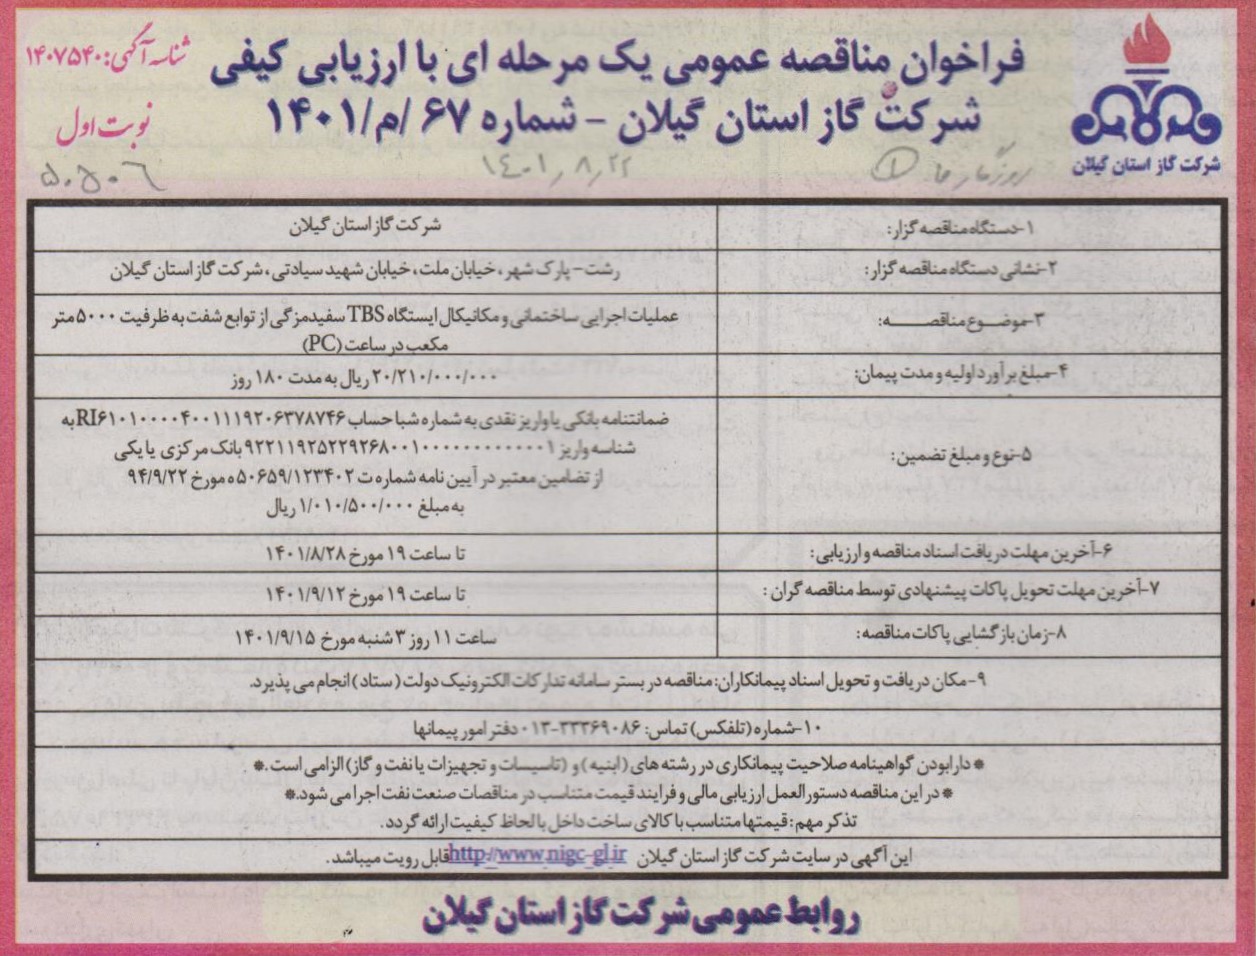 شناسه آگهی: ۱۴۰۷۵۴۰
نوبت اول
فراخوان مناقصه عمومی یک مرحله ای با ارزیابی کیفی
شرکت گاز استان گیلان - شماره ۶۷ /م/۱۴۰۱
شرکت گاز استان گیلان
۱۴۰۱٫۸٫۲۲
۱-دستگاه مناقصه گزار:
شرکت گاز استان گیلان
۲-نشانی دستگاه مناقصه گزار:
رشت- پارک شهر، خیابان ملت، خیابان شهید سیادتی، شرکت گاز استان گیلان
۳-موضوع مناقصه:
عملیات اجرایی ساختمانی و مکانیکال ایستگاه TBS سفیدمزگی از توابع شفت به ظرفیت ۵۰۰۰ متر
مکعب در ساعت (PC)
۴-مبلغ برآورد اولیه و مدت پیمان:
۲۰/۲۱۰/۰۰۰/۰۰۰ ریال به مدت ۱۸۰ روز
۵-نوع و مبلغ تضمین:
ضمانتنامه بانکی یا واریز نقدی به شماره شبا حساب RI۶۱۰۱۰۰۰۰۴۰۰۱۱۱۹۲۰۶۳۷۸۷۴۶ به
شناسه واریز ۹۲۲۱۱۹۲۵۲۲۹۲۶۸۰۰۱۰۰۰۰۰۰۰۰۰۰۰۰۱ بانک مرکزی یا یکی
از تضامین معتبر در آیین نامه شماره ت ۵۰۶۵۹/۱۲۳۴۰۲ ه مورخ ۹۴/۹/۲۲
به مبلغ ۱/۰۱۰/۵۰۰/۰۰۰ ریال
۶-آخرین مهلت دریافت اسناد مناقصه و ارزیابی:
تا ساعت ۱۹ مورخ ۱۴۰۱/۸/۲۸
۷-آخرین مهلت تحویل پاکات پیشنهادی توسط مناقصه گران :
تا ساعت ۱۹ مورخ ۱۴۰۱/۹/۱۲
۸-زمان بازگشایی پاکات مناقصه:
ساعت ۱۱ روز ۳ شنبه مورخ ۱۴۰۱/۹/۱۵
۹-مکان دریافت و تحویل اسناد پیمانکاران: مناقصه در بستر سامانه تدارکات الکترونیک دولت (ستاد) انجام می پذیرد.
۱۰-شماره (تلفکس) تماس: ۳۳۳۶۹۰۸۶-۰۱۳ دفتر امور پیمانها
*دارا بودن گواهینامه صلاحیت پیمانکاری در رشته های (ابنیه) و (تاسیسات و تجهیزات یا نفت و گاز) الزامی است.*
*در این مناقصه دستورالعمل ارزیابی مالی و فرایند قیمت متناسب در مناقصات صنعت نفت اجرا می شود.*
تذکر مهم: قیمتها متناسب با کالای ساخت داخل با لحاظ کیفیت ارائه گردد.
این آگهی در سایت شرکت گاز استان گیلان http://www.nigc-gl.ir قابل رویت میباشد.
روابط عمومی شرکت گاز استان گیلان